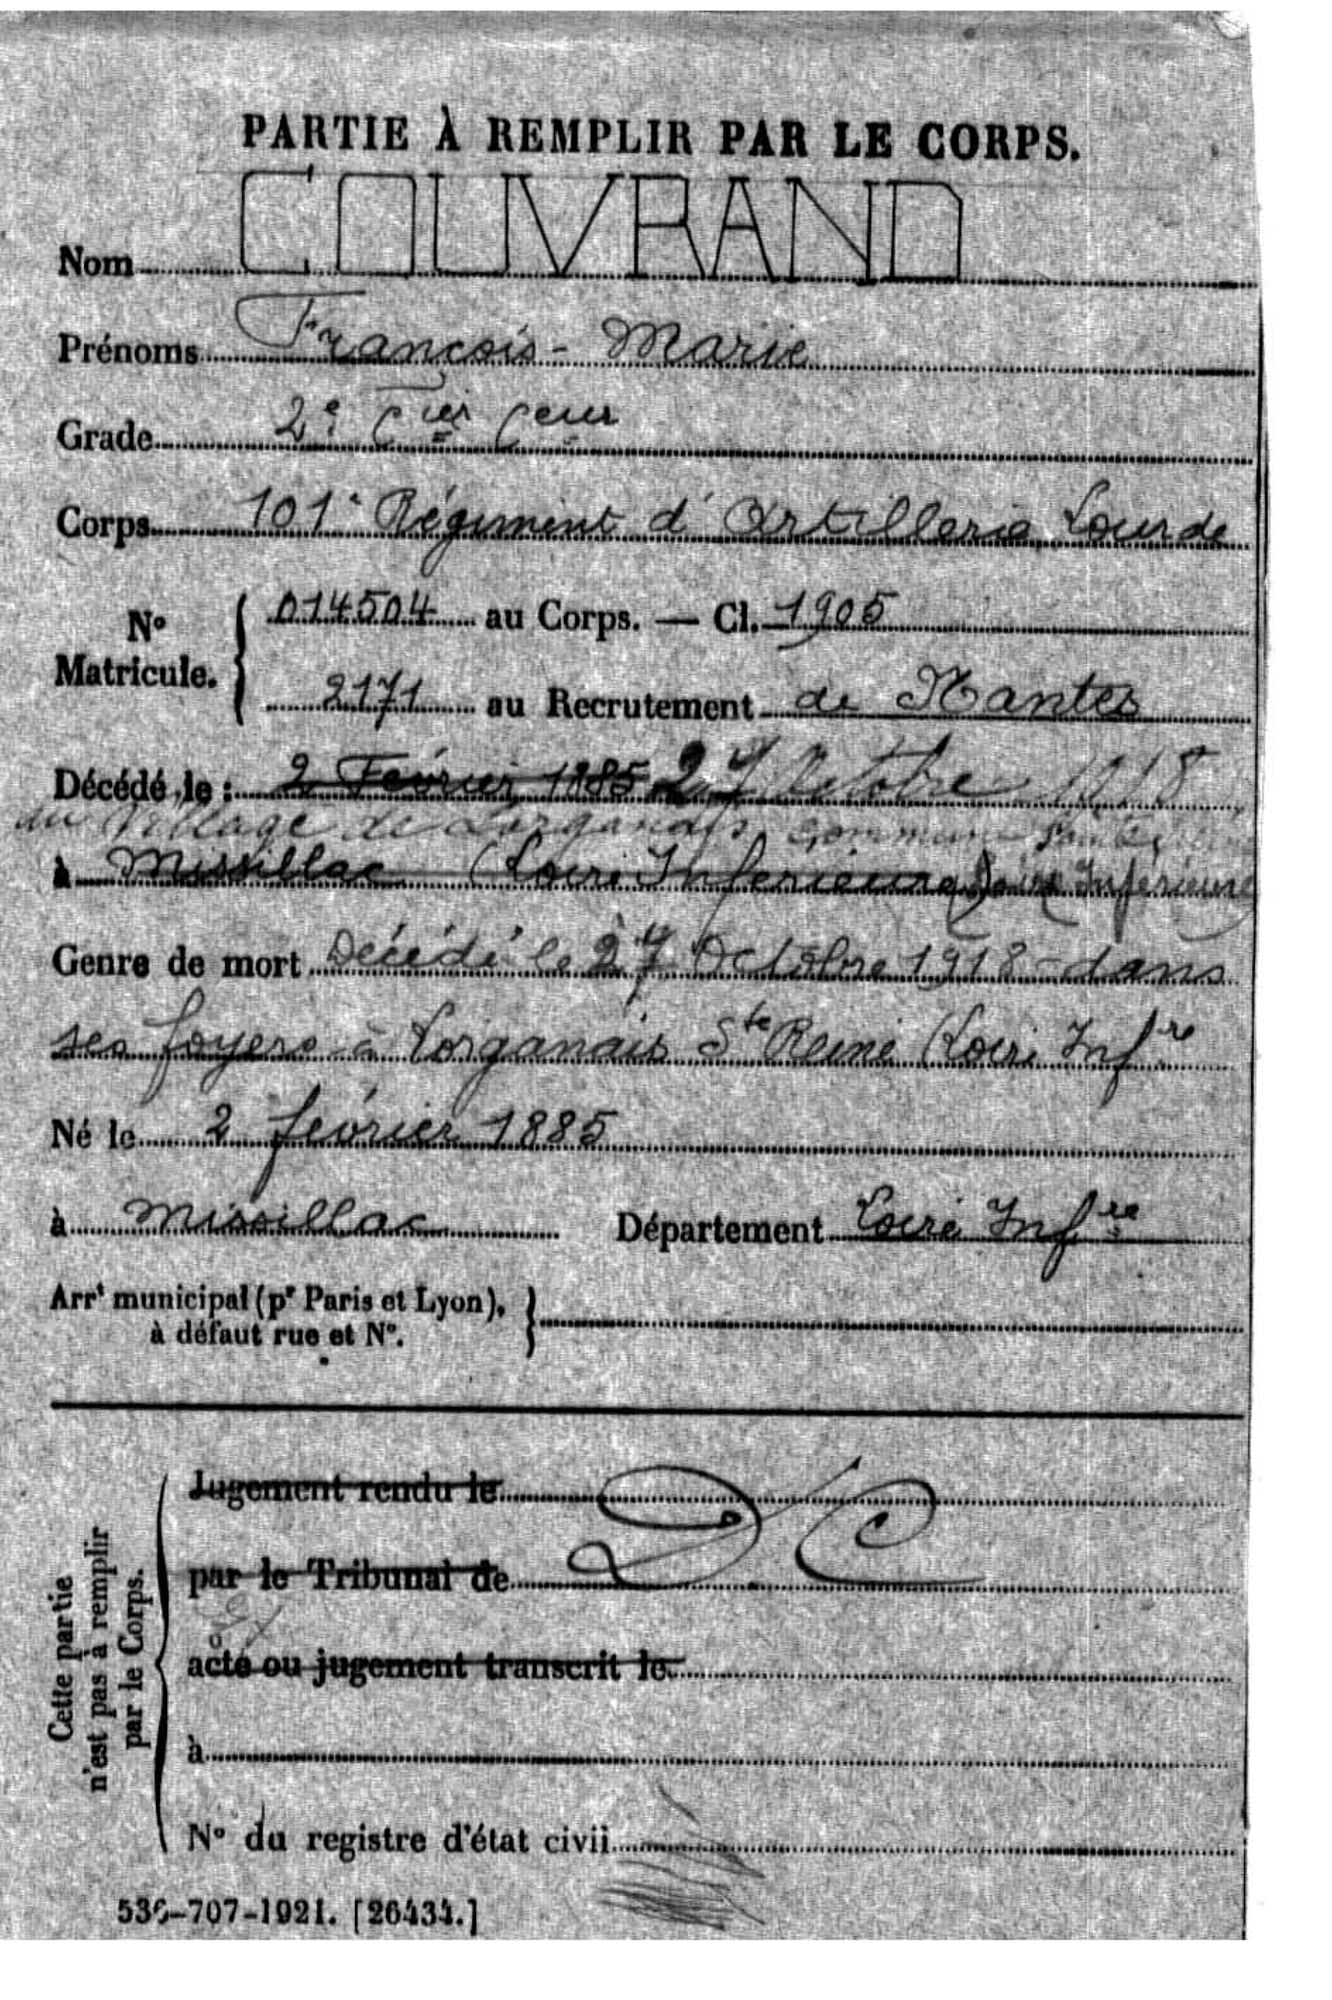 PARTIE À REMPLIR PAR LE CORPS.
Nom COUVRAND
Prénoms François-Marie
Grade 2e Cier Ceur
Corps 101e Régiment d'Artillerie Lourde
No Matricule. { 014504 au Corps. — Cl. 1905
2171 au Recrutement de Nantes
Décédé le : 2 Février 1885 27 Octobre 1918
au Village de Lorganais commune Sainte
à Missillac (Loire Inférieure) Loire Inférieure
Genre de mort Décédé le 27 Octobre 1918 - dans
ses foyers à Lorganais Ste Reine (Loire Infre
Né le 2 février 1885
à Missillac Département Loire Infre
Arrt municipal (pr Paris et Lyon),
à défaut rue et No.
Cette partie
n'est pas à remplir
par le Corps.
Jugement rendu le
par le Tribunal de
acte ou jugement transcrit le
à
No du registre d'état civil
536-707-1921. [26434.]